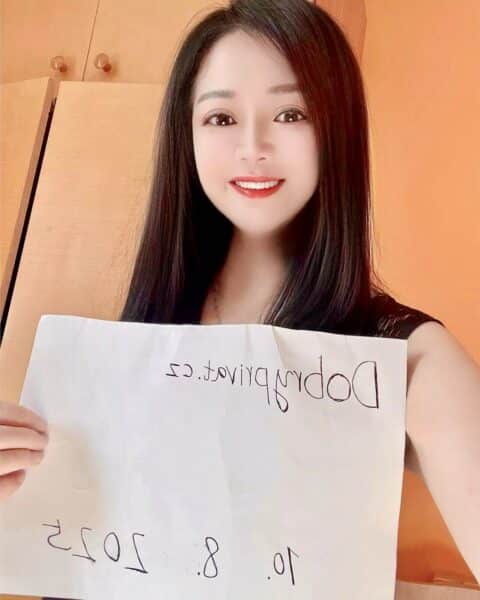 Dobryprivat.cz
10. 8. 2025